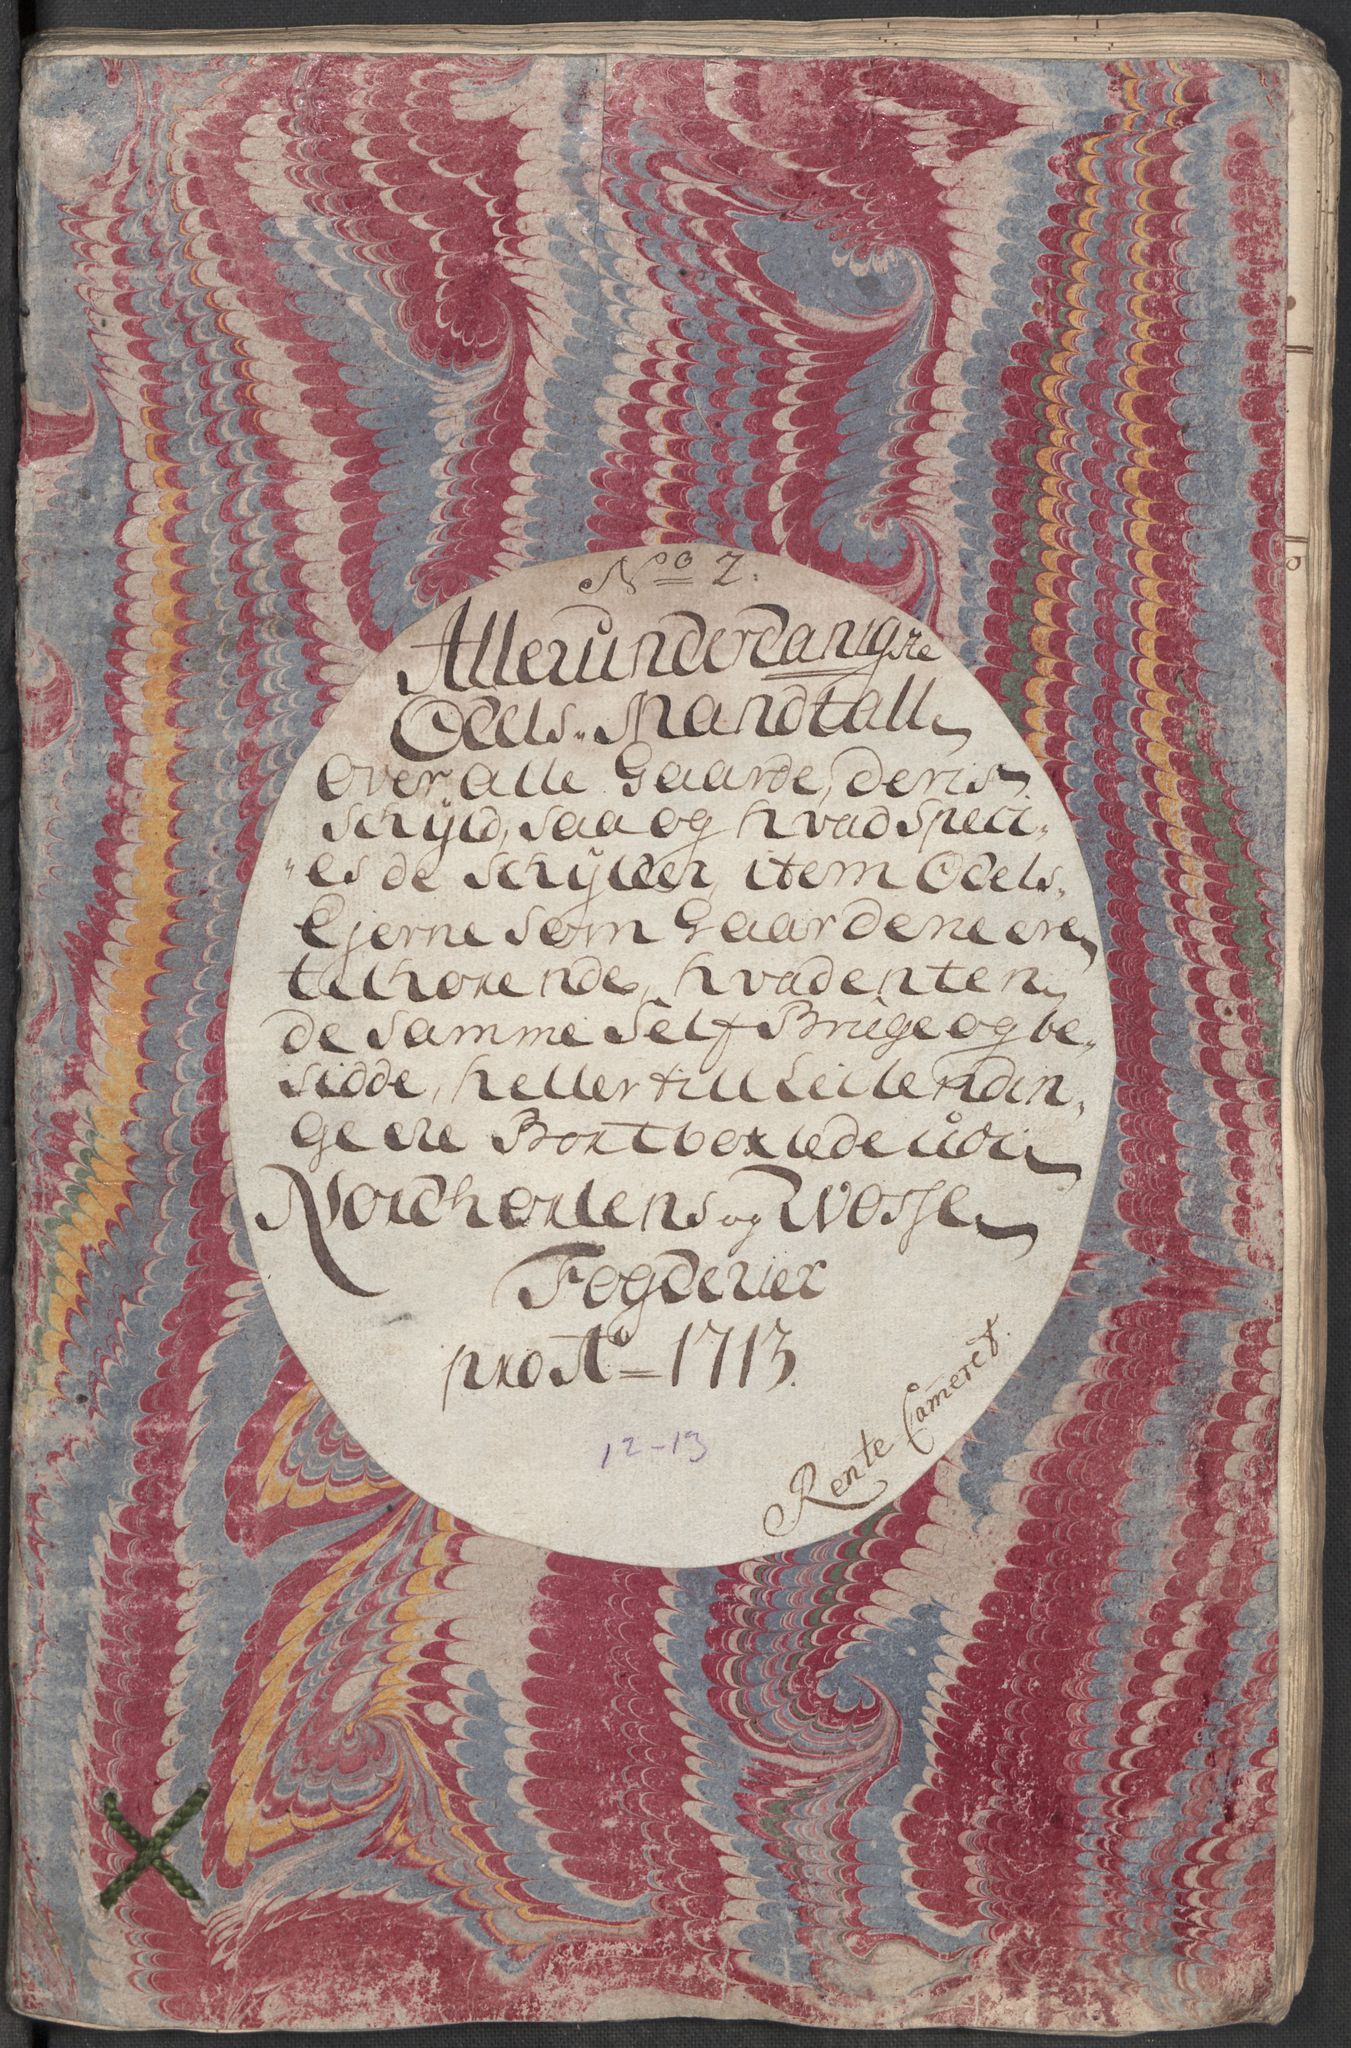 No 7.
Alleründerdanigste
Odels=Mandtall
over alle Gaarde, deris
schyld, saa og hvad speci=
=es de schylder, item Odels=
Ejerne som Gaardene ere
tilhørende, hvadenten
de samme Self Brüge og be=
sidde, heller till Leilendin=
ge ere Bortbøxlede üdi
Nordhorlens og Wosse
Fogderier
pro Ao = 1713.
12-13
Rente Cameret.